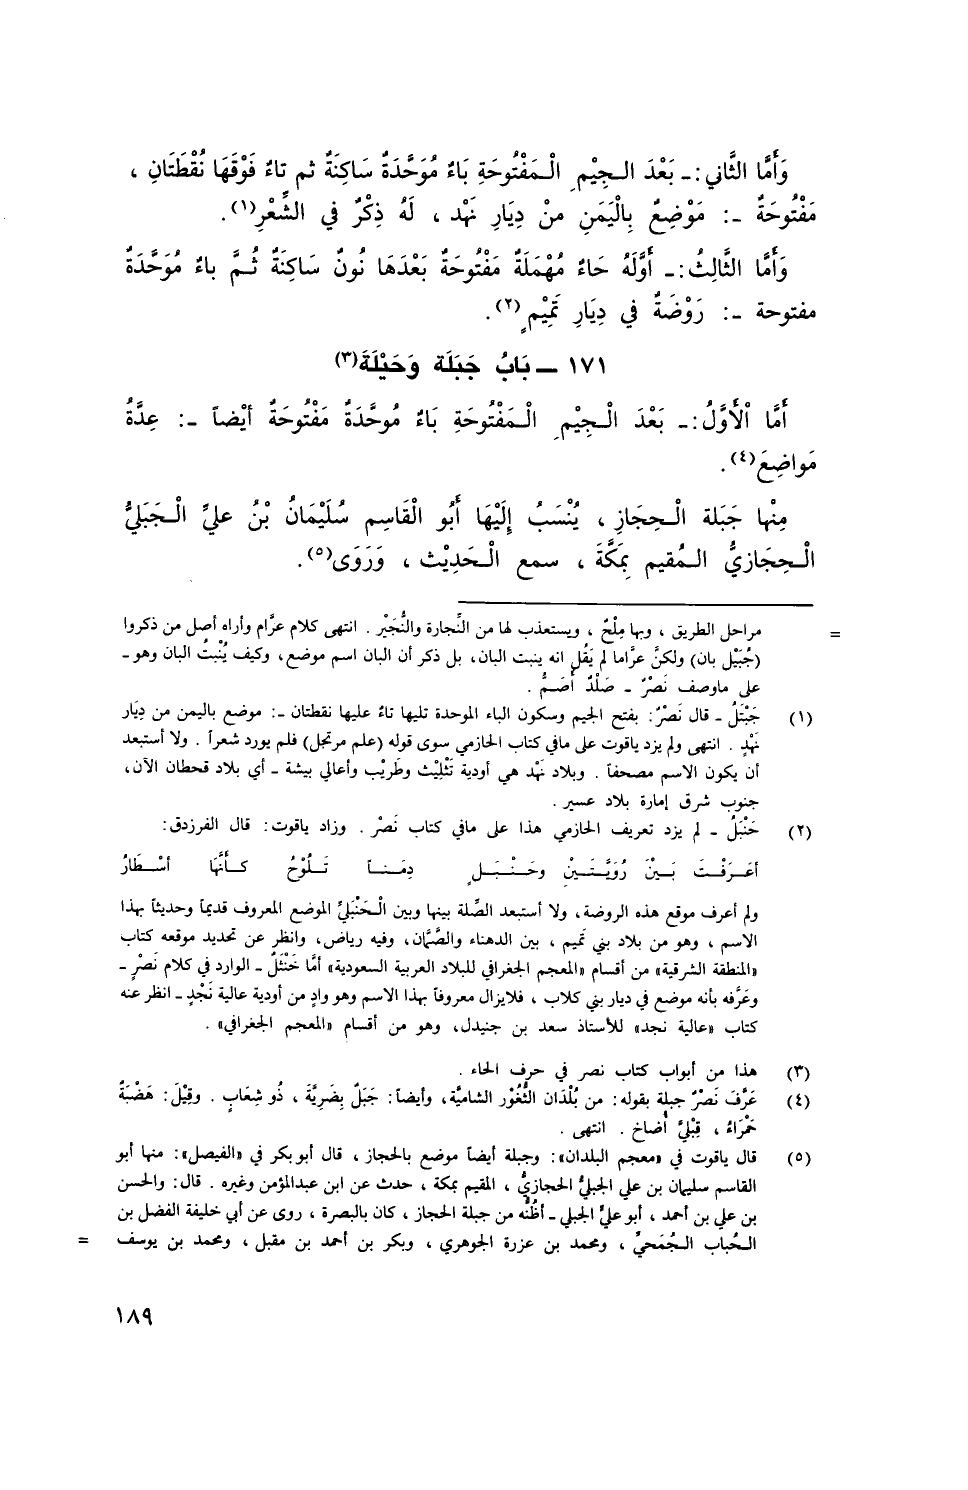 وَأَمَّا الثَّاني :ـ بَعْدَ الـجِيْمِ الْـمَفْتُوحَةِ بَاءٌ مُوَحَّدَةٌ سَاكِنَةٌ ثم تاءٌ فَوْقَهَا نُقْطَتَانِ ،
مَفْتُوحَةٌ ـ: مَوْضِعٌ بِالْيَمَنِ منْ دِيَارِ نَهْد ، لَهُ ذِكْرٌ في الشِّعْرِ(١).
وَأَمَّا الثَّالِثُ :ـ أَوَّلَهُ حَاءٌ مُهْمَلَةٌ مَفْتُوحَةٌ بَعْدَهَا نُونٌ سَاكِنَةٌ ثُـمَّ باءٌ مُوَحَّدَةٌ
مفتوحة ـ: رَوْضَةٌ في دِيَارِ تَمِيْمٍ(٢).
١٧١ ـ بَابُ جَبَلَة وَحَيْلَةَ(٣)
أَمَّا اْلأَوَّلُ :ـ بَعْدَ الْـجِيْمِ الْـمَفْتُوحَةِ بَاءٌ مُوحَّدَةٌ مَفْتُوحَةٌ أيْضاً ـ: عِدَّةُ
مَواضِعَ(٤).
مِنْها جَبَلة الْـحِجَازِ ، يُنْسَبُ إِلَيْهَا أَبُو الْقَاسِم سُلَيْمَانُ بْنُ عليِّ الْـجَبَليُّ
الْـحِجَازيُّ الـمُقيم بِمَكَّةَ ، سمع الْـحَدِيْث ، وَرَوَى(٥).
= مراحل الطريق ، وبها مِلْحٌ ، ويستعذب لها من النِّجارة والنُّجَيْر . انتهى كلام عرَّام وأراه أصل من ذكروا
(جُبَيْل بان) ولكنَّ عرَّاما لم يَقُل انه ينبت البان، بل ذكر أن البان اسم موضع، وكيف يُنْبتُ البان وهو ـ
على ماوصف نَصْرٌ ـ صَلْدٌ أَصَـمُّ .
(١) جَبْتَلُ ـ قال نَصْرٌ: بفتح الجيم وسكون الباء الموحدة تليها تاءٌ عليها نقطتان ـ: موضع باليمن من دِيَار
نَهْدٍ . انتهى ولم يزد ياقوت على مافي كتاب الحازمي سوى قوله (علم مرتجل) فلم يورد شعراً . ولا أستبعد
أن يكون الاسم مصحفاً . وبلاد نَهْد هي أودية تَثْلِيْث وطَرِيْب وأعالي بيشة ـ أي بلاد قحطان الآن،
جنوب شرق إمارة بلاد عسير .
(٢) حَنْبَلُ ـ لم يزد تعريف الحازمي هذا على مافي كتاب نَصْر . وزاد ياقوت: قال الفرزدق:
أعَـرَفْـتَ بَـيْنَ رُوَيَّـتَـيْنِ وحَـنْـبَـلٍ دِمَـنـاً تَـلُوْحُ كـأَنَّهَا أَسْـطَارُ
ولم أعرف موقع هذه الروضة، ولا أستبعد الصِّلة بينها وبين الْـحَنْبَليِّ الموضع المعروف قديماً وحديثاً بهذا
الاسم ، وهو من بلاد بني تميم ، بين الدهناء والصَّمَّان، وفيه رياض، وانظر عن تحديد موقعه كتاب
«المنطقة الشرقية» من أقسام «المعجم الجغرافي للبلاد العربية السعودية» أمَّا خَنْثَلُ ـ الوارد في كلام نَصْرٍ ـ
وعَرَّفه بأنه موضع في ديار بني كلاب ، فلايزال معروفاً بهذا الاسم وهو وادٍ من أودية عالية نَجْدٍ ـ انظر عنه
كتاب «عالية نجد» للأستاذ سعد بن جنيدل، وهو من أقسام «المعجم الجغرافي» .
(٣) هذا من أبواب كتاب نصر في حرف الحاء .
(٤) عَرَّفَ نَصْرٌ جبلة بقوله: من بُلْدَان الثُّغُوْر الشاميَّة، وأيضاً: جَبَلٌ بِضَرِيَّةَ ، ذُو شِعَابٍ . وقِيْلَ: هَضْبَةٌ
حَمْرَاءُ ، قِبْليَّ أُضاخ . انتهى .
(٥) قال ياقوت في «معجم البلدان»: وجبلة أيضاً موضع بالحجاز ، قال أبوبكر في «الفيصل»: منها أبو
القاسم سليمان بن علي الجبليُّ الحجازيُّ ، المقيم بمكة ، حدث عن ابن عبدالمؤمن وغيره . قال: والحسن
بن علي بن أحمد ، أبو عليِّ الجبلي ـ أظُنُّه من جبلة الحجاز ، كان بالبصرة ، روى عن أبي خليفة الفضل بن
الـحُباب الـجُمَحيُّ ، ومحمد بن عزرة الجوهري ، وبكر بن أحمد بن مقبل ، ومحمد بن يوسف =
١٨٩